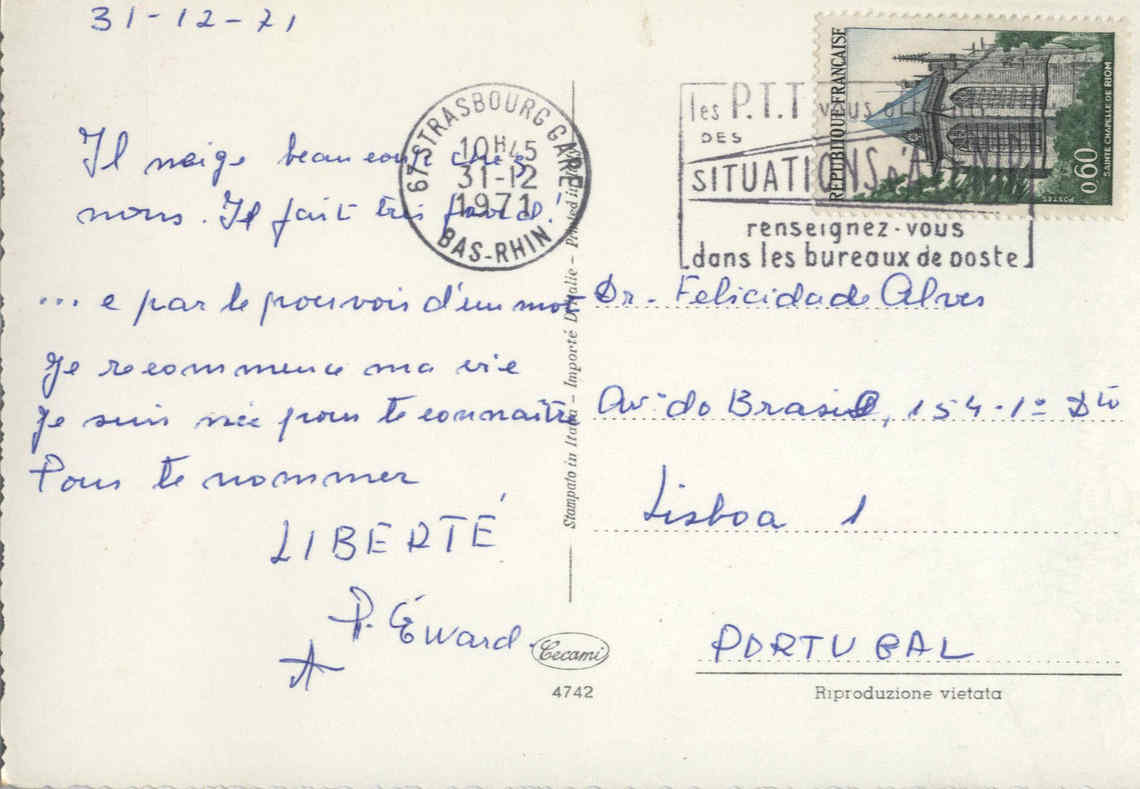 31-12-71
Il neige beaucoup chez
nous. Il fait très froid!
... e par le pouvoir d'un mot
Je recommence ma vie
Je suis née pour te connaître
Pour te nommer
LIBERTÉ
P. Éluard.
67 STRASBOURG GARE
10H45
31-12
1971
BAS-RHIN
les P.T.T vous offrent
DES
SITUATIONS d'AVENIR
renseignez-vous
dans les bureaux de poste
REPUBLIQUE FRANÇAISE
0,60
SAINTE CHAPELLE DE RIOM
POSTES
Dr. Felicidade Alves
Av. do Brasil, 154-1º Dto
Lisboa 1
PORTUGAL
Stampato in Italia - Importé D'Italie - Printed in Italy
Cecami
4742
Riproduzione vietata